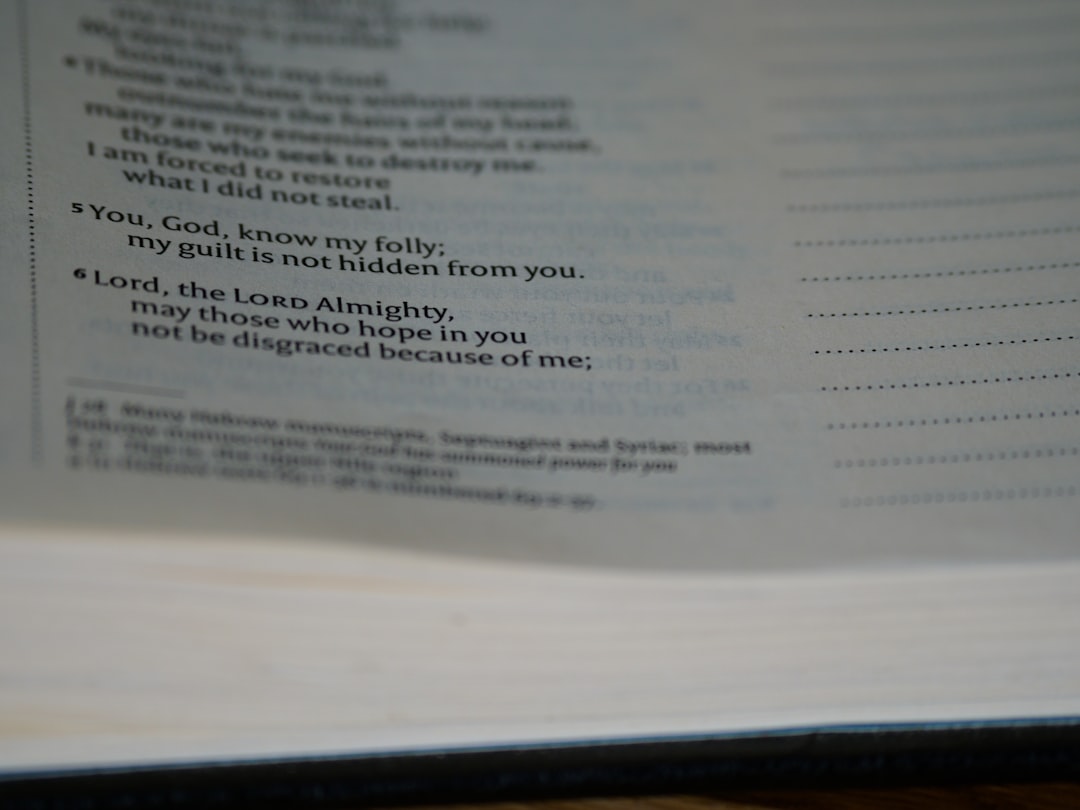 my eyes fail,
looking for my God.
4 Those who hate me without reason
outnumber the hairs of my head;
many are my enemies without cause,
those who seek to destroy me.
I am forced to restore
what I did not steal.
5 You, God, know my folly;
my guilt is not hidden from you.
6 Lord, the LORD Almighty,
may those who hope in you
not be disgraced because of me;
Many Hebrew manuscripts, Septuagint and Syriac; most
Hebrew manuscripts Your God has summoned power for you